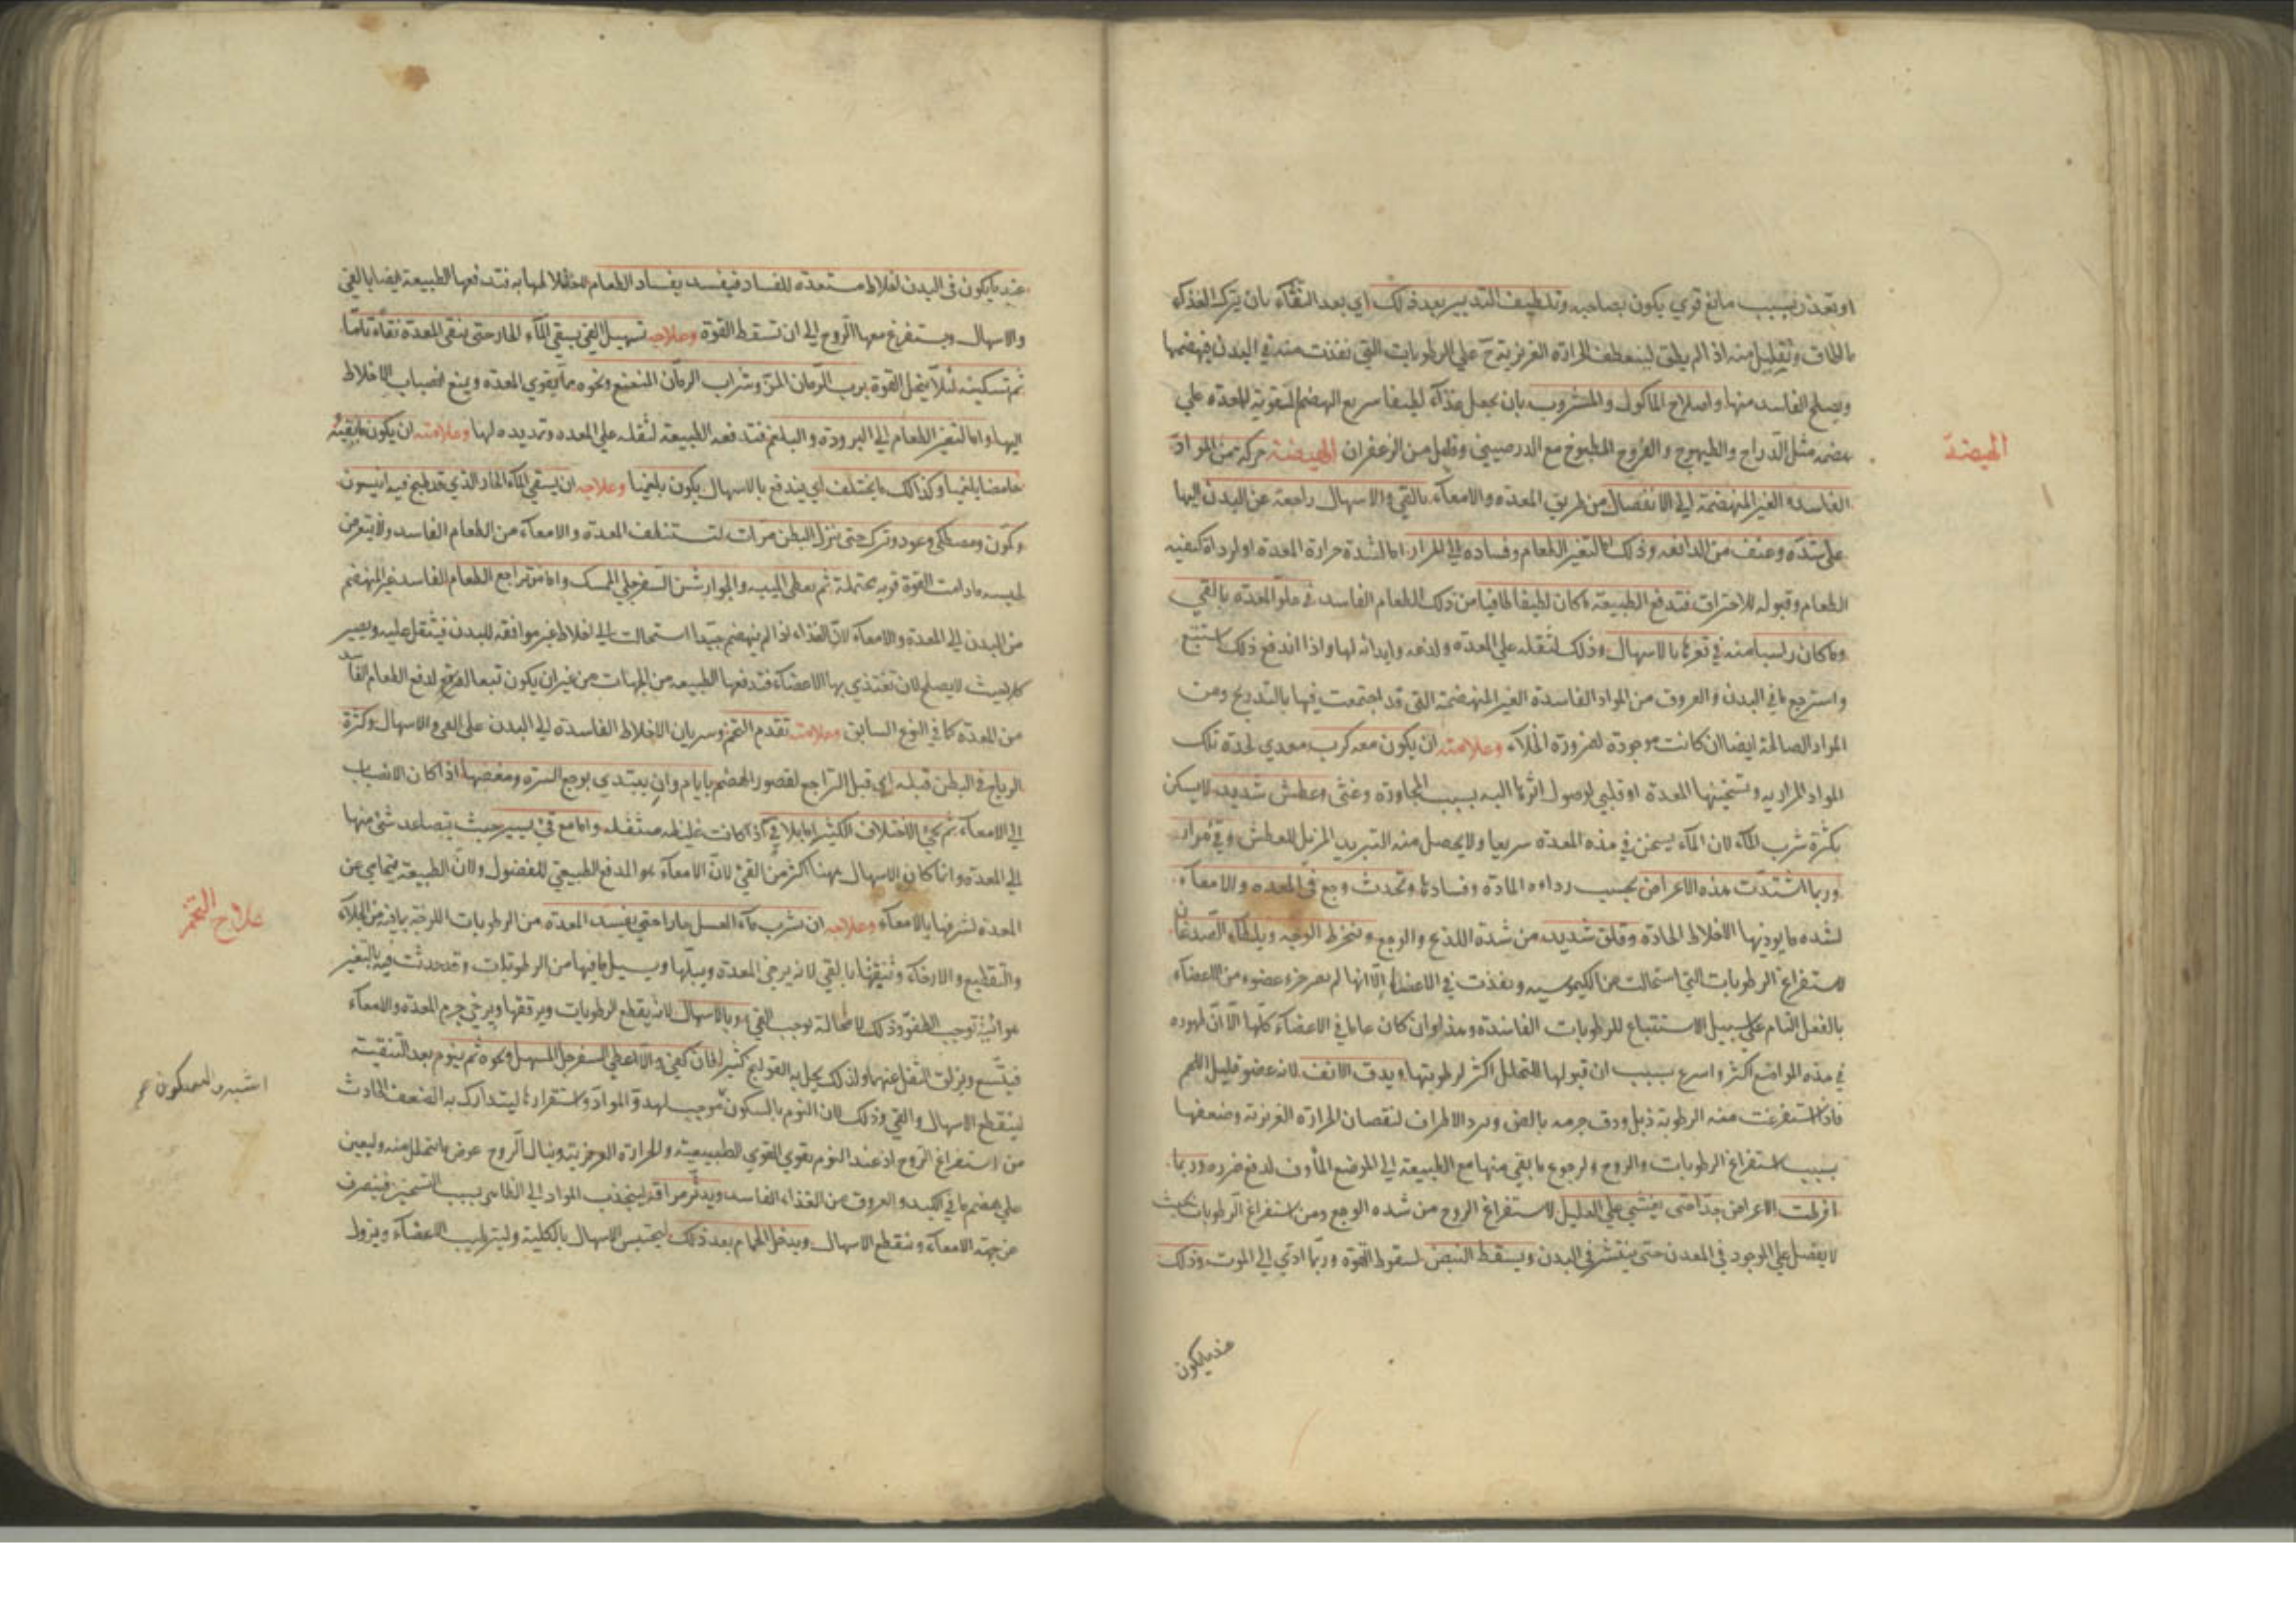 او تعذر بسبب مانع قوي يكون بصاحبه وتلطيف التدبير بعد ذلك اي بعد النقاء بان يترك الغذاء
ما اطاق وتقليل منه اذا لم يطق لينعطف الحرارة الغريزية على الرطوبات التي نفذت منه في البدن فيهضمها
ويصلح الفاسد منها واصلاح الماكول والمشروب بان يجعل غذاء لطيفا سريع الهضم لتقوية المعدة على
هضمه مثل الدراج والطيهوج والفروج المطبوخ مع الدرصيني وقليل من الزعفران الهيضة حركة من المواد
الهيضة
الفاسدة الغير المنهضمة الى الانفصال من طريق المعدة والامعاء بالقي والاسهال راجعة عن البدن اليها
على شدة وعنف من الدافعه وذلك اما لتغير الطعام وفساده الى المرار اما لشدة حرارة المعدة او لرداة كيفيه
الطعام وقبوله للاحتراق فتدفع الطبيعة ما كان لطيفا طافيا من ذلك الطعام الفاسد في علو المعدة بالقي
وما كان راسبا منه في قعرها بالاسهال وذلك لثقله على المعدة ولذعه وايذائه لها واذا اندفع ذلك استتبع
واسترجع ما في البدن والعروق من المواد الفاسدة الغير المنهضمة التي قد اجتمعت فيها بالتدريج ومن
المواد الصالحة ايضا ان كانت موجودة لضرورة الخلاء وعلامته ان يكون معه كرب معدي لحدة تلك
المواد المرارية وتسخينها المعدة او قلبي لوصول اثرها اليه بسبب المجاورة وغثي وعطش شديد لا يسكن
بكثرة شرب الماء لان الماء يسخن في هذه المعدة سريعا ولا يحصل منه التبريد المزيل للعطش وقي مرار
وربما اشتدت هذه الاعراض بحسب رداوه المادة وفسادها وتحدث وجع في المعدة والامعاء
لشده ما يوذيها الاخلاط الحادة وقلق شديد من شدة اللذع والوجع وينخرط الوجه ويلطاء الصدغان
لاستفراغ الرطوبات التي استحالت عن الكيموسيه ونفذت في الاعضاء الا انها لم يصر جزء عضو من الاعضاء
بالفعل التام على سبيل الاستتباع للرطوبات الفاسدة وهذا وان كان عاما في الاعضاء كلها الا ان ظهوره
في هذه المواضع اكثر واسرع بسبب ان قبولها للتحلل اكثر لرطوبتها ويدق الانف لانه عضو قليل اللحم
فاذا استفرغت منه الرطوبة ذبل ودق جرمه بالضر وبرد الاطراف لنقصان الحرارة الغريزية وضعفها
بسبب استفراغ الرطوبات والروح ولرجوع ما بقي منها مع الطبيعة الى الموضع المأوف لدفع ضرره وربما
افرطت الاعراض جدا حتى يغشي على العليل لاستفراغ الروح من شده الوجع ومن استفراغ الرطوبات بحيث
لا يفضل على الموجود في المعدن حتى ينتشر في البدن ويسقط النبض لسقوط القوة وربما ادي الى الموت وذلك
عند ما يكون
عند ما يكون في البدن اخلاط مستعدة للفساد فيفسد بفساد الطعام لاختلاطها به فتدفعها الطبيعة ايضا بالقي
والاسهال ويستفرغ معها الروح الى ان تسقط القوة وعلاجه تسهيل القي بسقي الماء الحار حتى ينقي المعدة نقاءً تاما
ثم تسكينه لئلا يتحلل القوة برب الرمان المز وشراب الرمان المنعنع ونحوه مما يقوي المعدة ويمنع انصباب الاخلاط
اليها واما لتغير الطعام الى البرودة والبلغم فتدفعه الطبيعة لثقله على المعده وتمديده لها وعلامته ان يكون ما يقيئه
حامضا بلغميا وكذلك ما يختلف اي يندفع بالاسهال يكون بلغميا وعلاجه ان يسقي الماء الحار الذي قد طبخ فيه انيسون
وكمون ومصطكي وعود وترك حتى ينزل البطن مرات لتستنظف المعدة والامعاء من الطعام الفاسد ولا يتعرض
لحبسه ما دامت القوة قوية محتملة ثم يعطي الميبه والجوارشن السفرجلي الممسك واما من تراجع الطعام الفاسد غير المنهضم
من البدن الى المعدة والامعاء لان الغذاء اذا لم ينهضم جيدا استحالت الى اخلاط غير موافقه للبدن فيثقل عليه ويصير
كل بحيث لا يصلح لان تغتذي بها الاعضاء فتدفعها الطبيعه من الجهات من غير ان يكون تبعا لدفع الطعام الفاسد
من المعدة كما في النوع السابق وعلامته تقدم التخم وسريان الاخلاط الفاسدة الى البدن على القي والاسهال وكثرة
الرياح في البطن قبله اي قبل التراجع لقصور الهضم بايام وان يبتدي بوجع السرة ومغصها اذا كان الانصباب
الى الامعاء ثم يجي الاختلاف الكثير اما بلا قي اذا كانت غليظه مستفله واما مع قي يسير حيث يتصاعد شي منها
الى المعدة وانما كان الاسهال ههنا اكثر من القي لان الامعاء هو المدفع الطبيعي للفضول ولان الطبيعة يتحامي عن
المعدة لشرفها بالامعاء وعلاجه ان يشرب ماء العسل حارا حتى يغسل المعدة من الرطوبات اللزجة بما فيه من الجلاء
علاج التخم
والتقطيع والارخاء وتنقيتها بالقي لانه يرخي المعدة ويبلها ويسيل ما فيها من الرطوبات وقد حدثت فيه بالتغير
هوائية توجب الطفو وذلك لا محالة يوجب القي وبالاسهال لانه يقطع الرطوبات ويرققها ويرخي جرم المعدة والامعاء
فيتسع ويزلق الثفل عنهما ولذلك يحل به القولنج كثيرا فان كفي والا اعطي السفرجل المسهل ونحوه ثم ينوم بعد التنقيته
لينقطع الاسهال والقي وذلك لان النوم بالسكون موجب لهدو المواد واستقرارها ليتدارك به الضعف الحادث
من استفراغ الروح اذ عند النوم يقوي القوي الطبيعية والحرارة الغريزية وينال الروح عوض ما تحلل منه وليعين
على هضم ما في الكبد والعروق من الغذاء الفاسد ويدثر مراقه لينجذب المواد الى الظاهر بسبب التسخين فينصرف
عن جهة الامعاء وينقطع الاسهال ويدخل الحمام بعد ذلك ليحتبس الاسهال بالكلية وليترطب الاعضاء ويزول